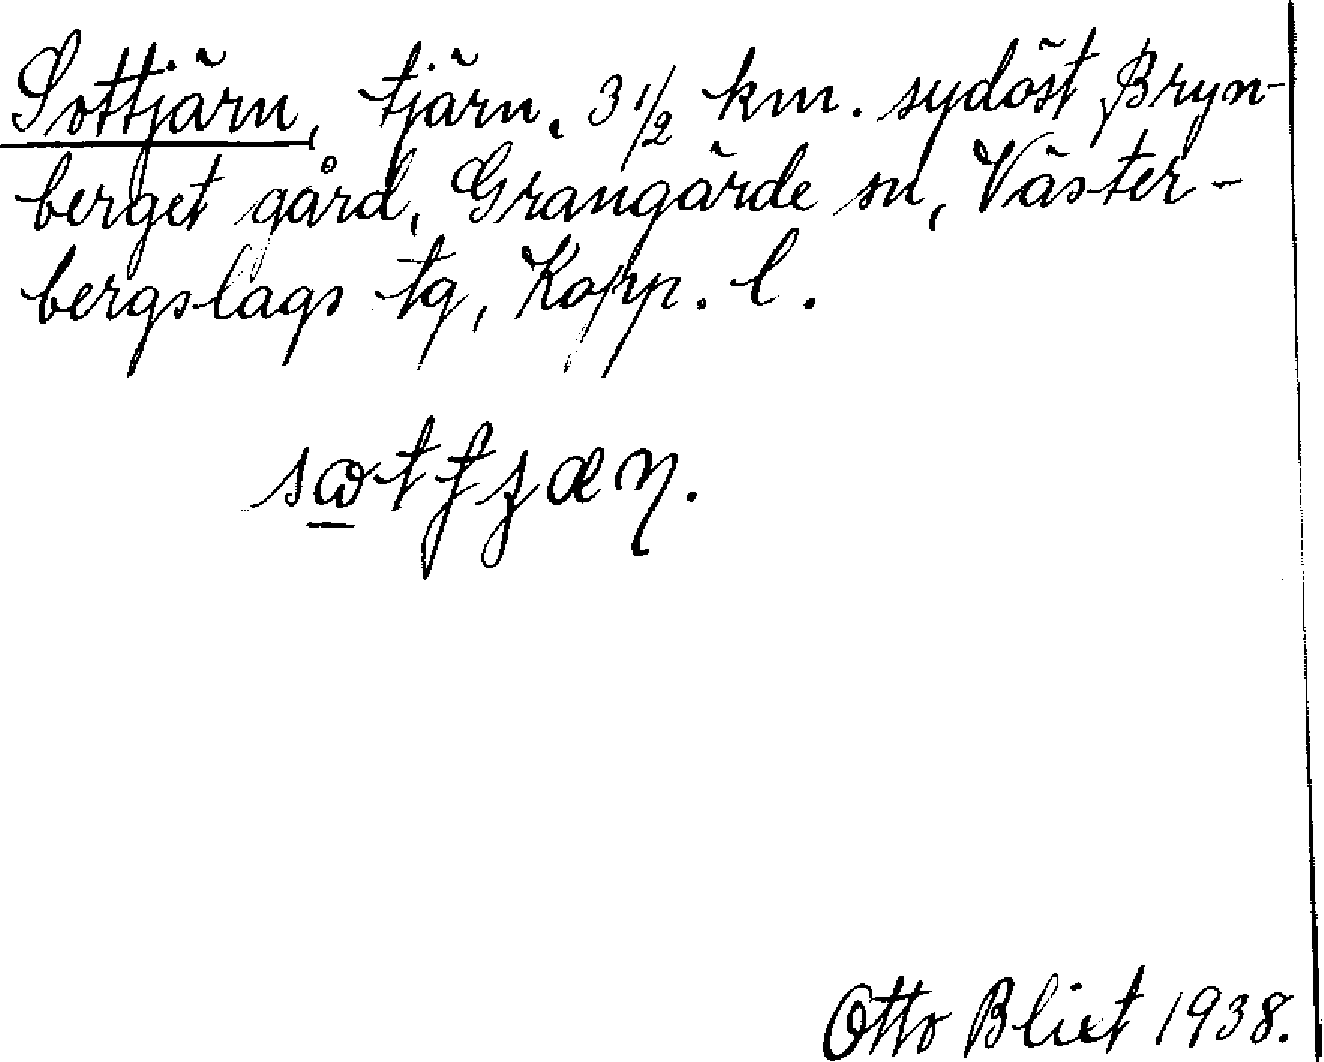 Sottjärn, tjärn. 3 1/2 km. sydöst Bryn-
berget gård, Grangärde sn, Väster-
bergslags tg, Kopp. l.
Otto Blixt 1938.